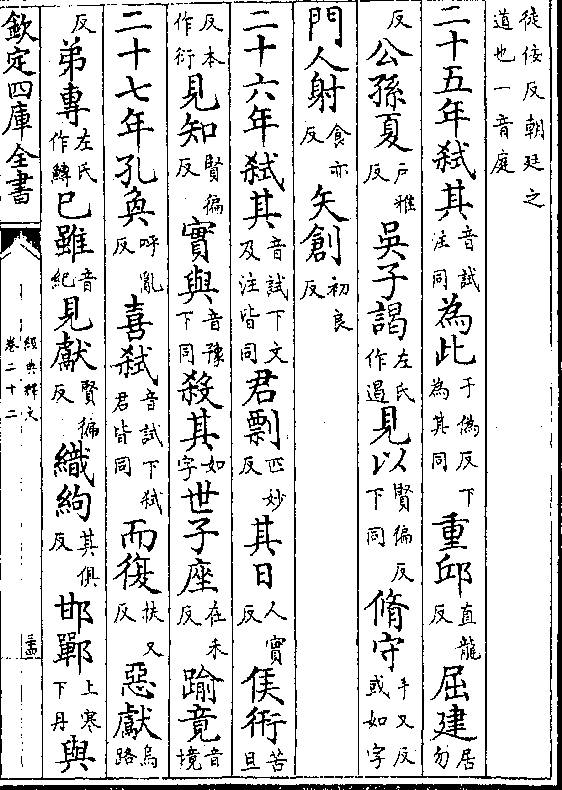 徒佞反朝廷之道也一音庭
二十五年弑其音試注同為此于偽反下為其同重邱直龍反屈建居勿
反公孫夏户雅反吳子謁左氏作遏見以賢徧反下同脩守手又反或如字
門人射食亦反矢創初良反
二十六年弑其音試下文及注皆同君剽匹妙反其日人實反侯衎苦旦
反本作衍見知賢徧反實與音豫下同殺其如字世子座在禾反踰竟音境
二十七年孔奐呼亂反喜弑音試下弑君皆同而復扶又反惡獻烏路
反弟專左氏作鱄巳雖音紀見獻賢徧反織絇其俱反邯鄲上寒下丹與
欽定四庫全書
經典釋文
卷二十二